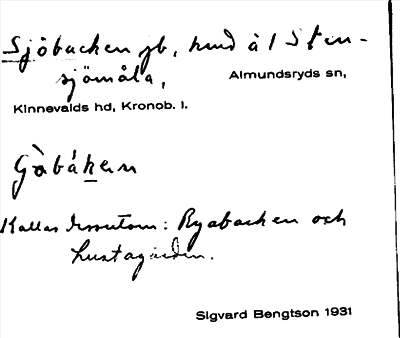 Sjöbacken gb, hmd å 1 Sten-
sjömåla, Almundsryds sn,
Kinnevalds hd, Kronob. l.
Kallas dessutom: Ryabacken och
Lustagården.
Sigvard Bengtson 1931